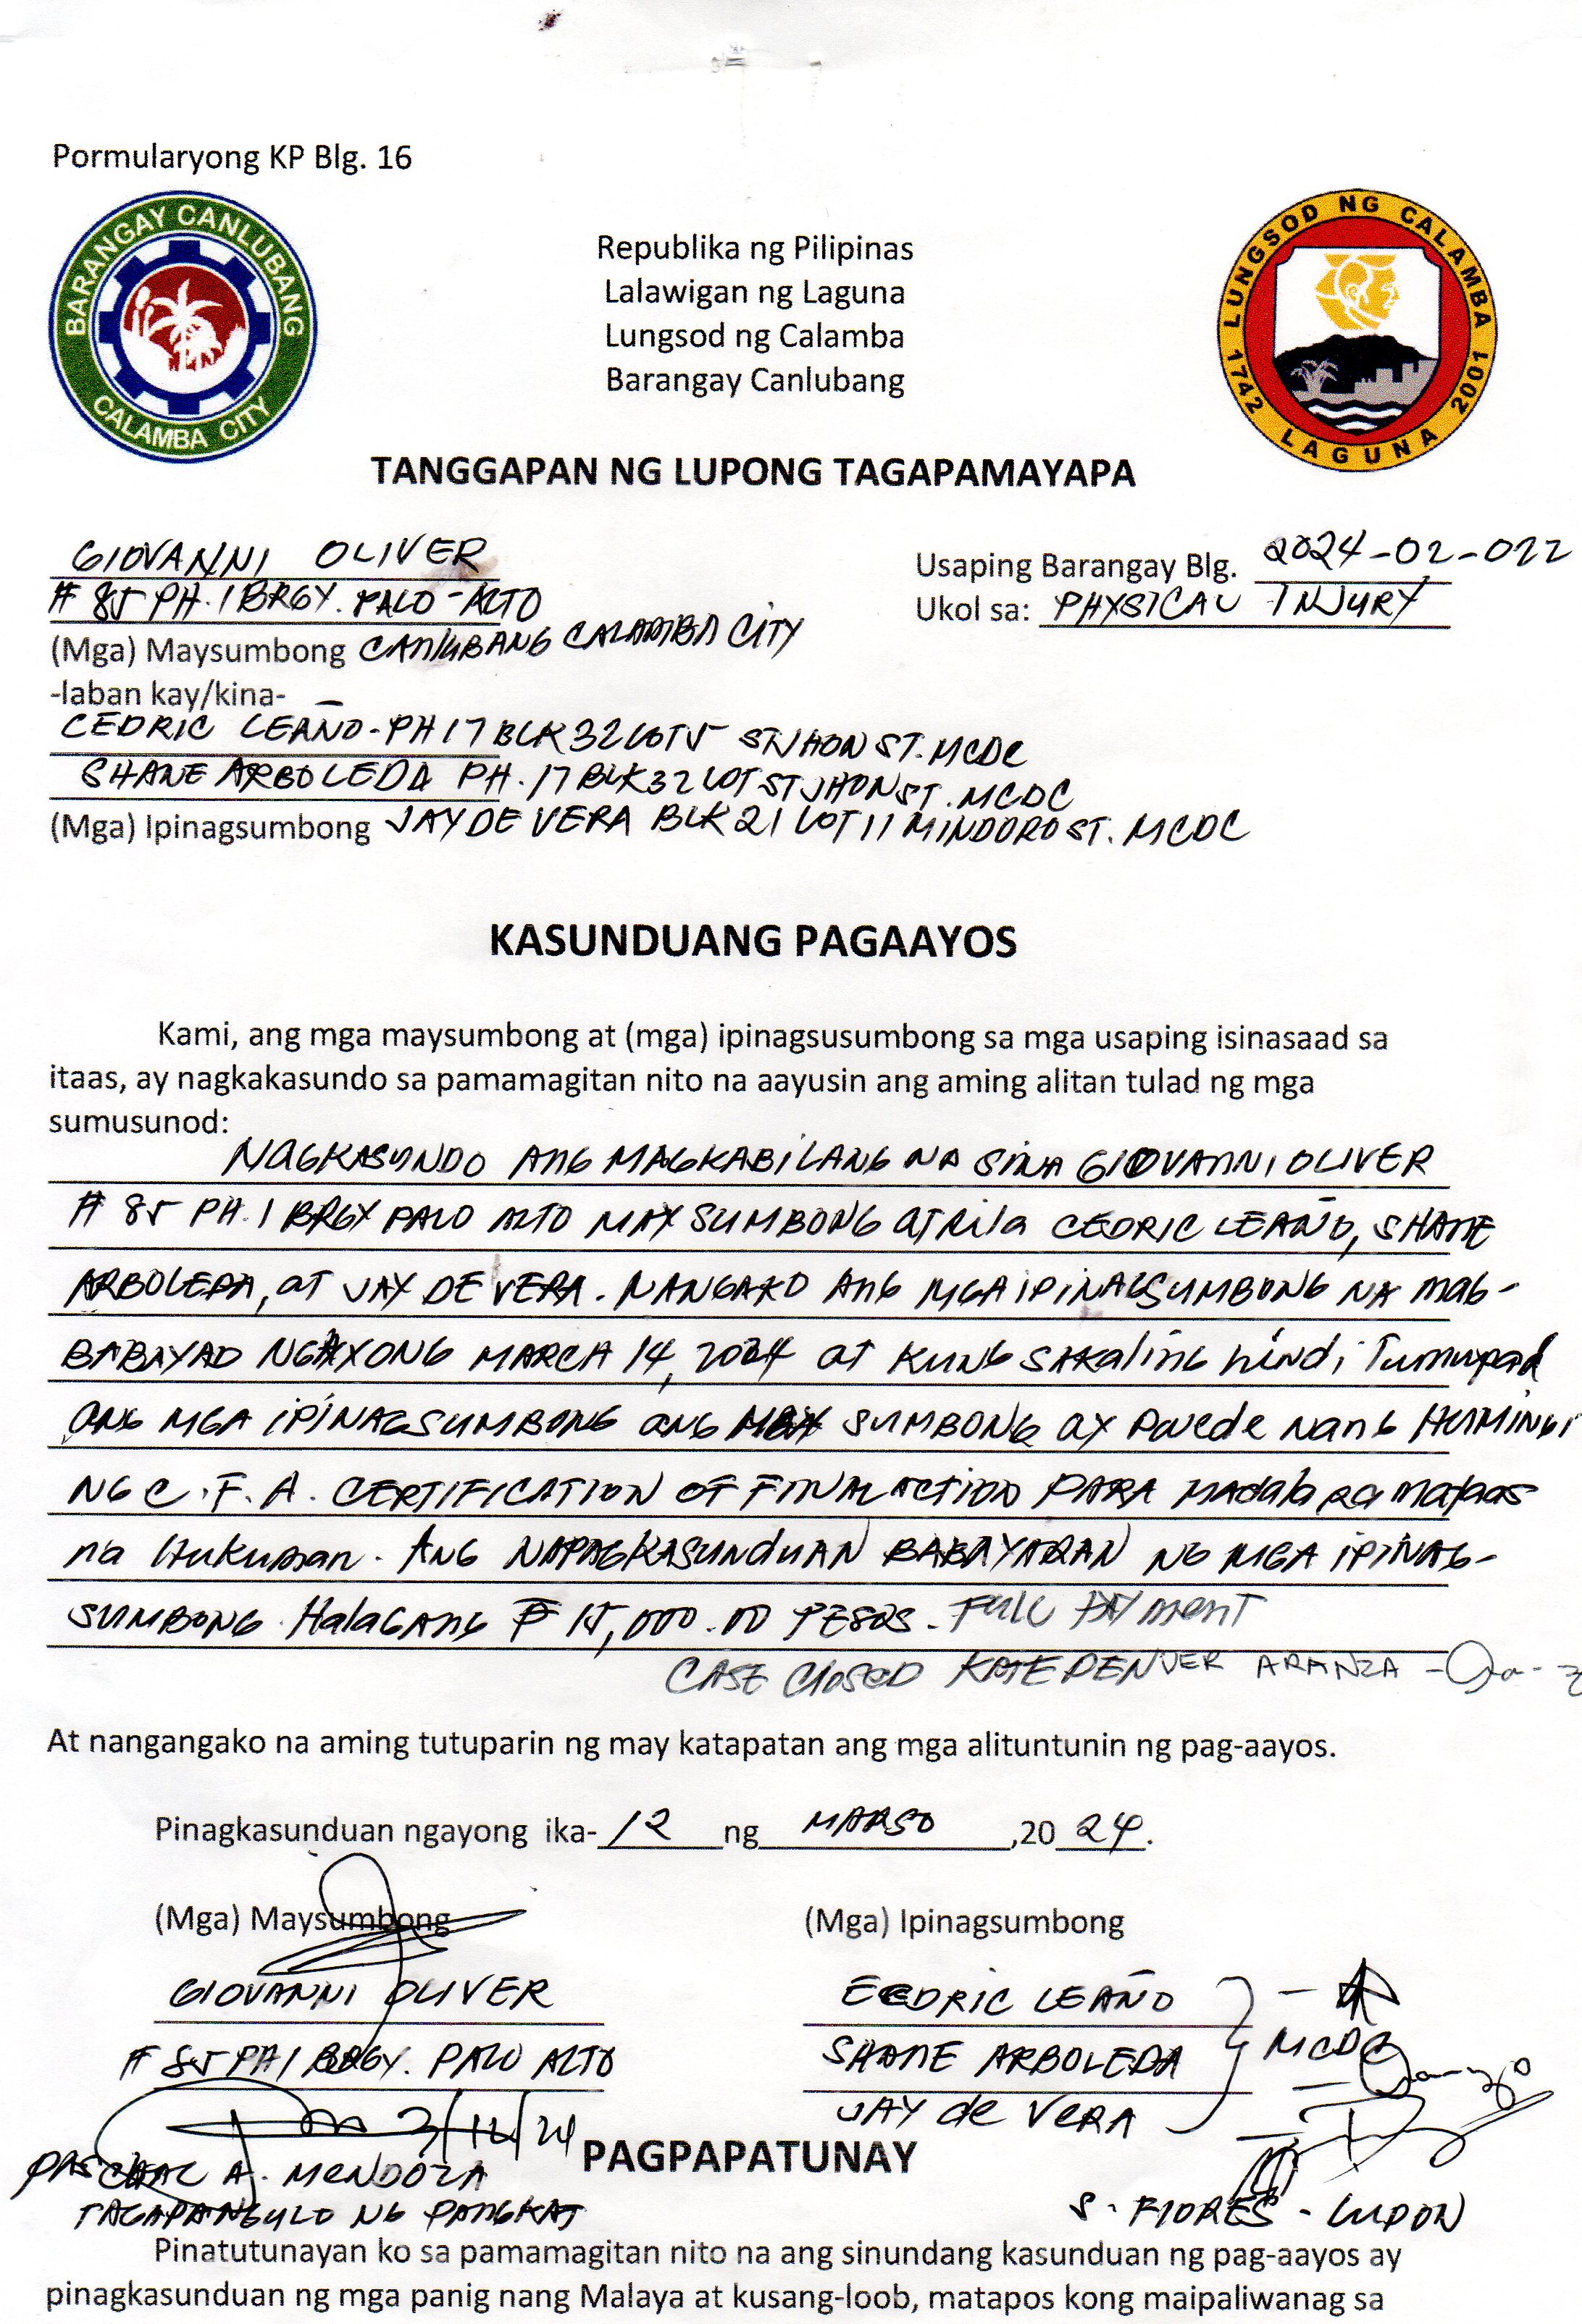 Pormularyong KP Blg. 16
BARANGAY CANLUBANG
CALAMBA CITY
LUNGSOD NG CALAMBA
1742 LAGUNA 2001
Republika ng Pilipinas
Lalawigan ng Laguna
Lungsod ng Calamba
Barangay Canlubang
TANGGAPAN NG LUPONG TAGAPAMAYAPA
GIOVANNI OLIVER
# 85 PH. 1 BRGY. PALO-ALTO
(Mga) Maysumbong CANLUBANG CALAMBA CITY
Usaping Barangay Blg. 2024-02-022
Ukol sa: PHYSICAL INJURY
-laban kay/kina-
CEDRIC LEAÑO - PH 17 BLK 32 LOT 5 ST JHON ST. MCDC
SHANE ARBOLEDA PH. 17 BLK 32 LOT ST JHON ST. MCDC
(Mga) Ipinagsumbong JAY DE VERA BLK 21 LOT 11 MINDORO ST. MCDC
KASUNDUANG PAGAAYOS
Kami, ang mga maysumbong at (mga) ipinagsusumbong sa mga usaping isinasaad sa
itaas, ay nagkakasundo sa pamamagitan nito na aayusin ang aming alitan tulad ng mga
sumusunod:
NAGKASUNDO ANG MAGKABILANG NA SINA GIOVANNI OLIVER
# 85 PH. 1 BRGY PALO ALTO MAY SUMBONG at sila CEDRIC LEAÑO, SHANE
ARBOLEDA, at JAY DE VERA. NANGAKO ANG MGA IPINAGSUMBONG NA MAG-
BABAYAD NGAYONG MARCH 14, 2024 at KUNG SAKALING hindi Tumupad
ANG MGA IPINAGSUMBONG ANG MAY SUMBONG AY Pwede NANG HUMINGI
NG C.F.A. CERTIFICATION OF FINAL ACTION PARA Madala sa mataas
na Hukuman. ANG NAPAGKASUNDUAN BABAYARAN NG MGA IPINAG-
SUMBONG Halagang ₱ 15,000.00 PESOS. FULL PAYMENT
CASE CLOSED KATE DENVER ARANZA -
At nangangako na aming tutuparin ng may katapatan ang mga alituntunin ng pag-aayos.
Pinagkasunduan ngayong ika- 12 ng MARSO ,20 24.
(Mga) Maysumbong
(Mga) Ipinagsumbong
GIOVANNI OLIVER
# 85 PH 1 BRGY. PALO ALTO
CEDRIC LEAÑO
SHANE ARBOLEDA
JAY de VERA
MCDC
3/12/24
PASCUAL A. MENDOZA
TAGAPANGULO NG PANGKAT
PAGPAPATUNAY
S. FLORES - LUPON
Pinatutunayan ko sa pamamagitan nito na ang sinundang kasunduan ng pag-aayos ay
pinagkasunduan ng mga panig nang Malaya at kusang-loob, matapos kong maipaliwanag sa